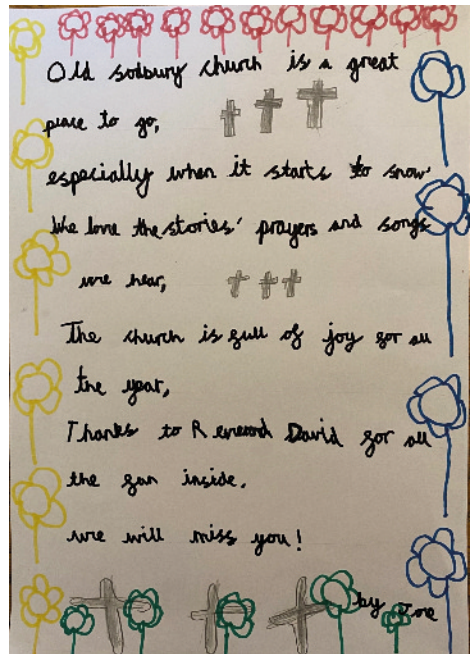 Old sodbury church is a great
place to go,
especially when it starts to snow.
We love the stories, prayers and songs
we hear,
The church is full of joy for all
the year,
Thanks to Reverend David for all
the fun inside.
we will miss you!
by